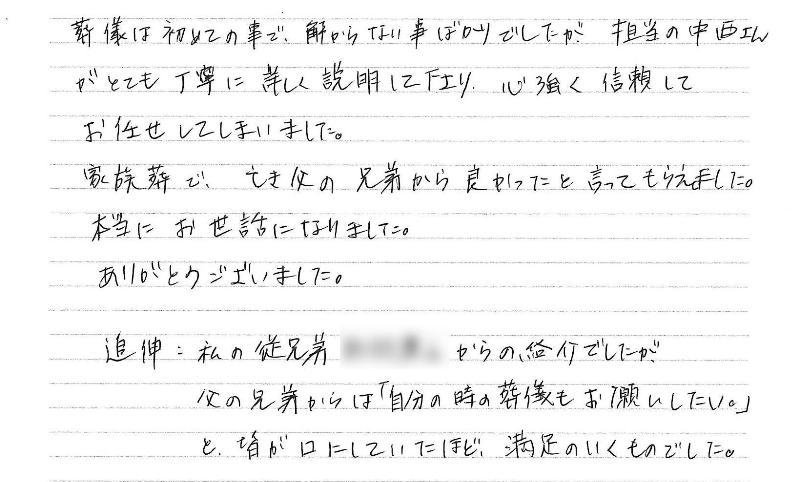 葬儀は初めての事で、解からない事ばかりでしたが 担当の中西さん
がとても丁寧に詳しく説明して下さり、心強く信頼して
お任せしてしまいました。
家族葬で、亡き父の兄弟から良かったと言ってもらえました。
本当にお世話になりました。
ありがとうございました。
追伸：私の従兄弟 からの、紹介でしたが
父の兄弟からは「自分の時の葬儀もお願いしたい。」
と、皆が口にしていたほど、満足のいくものでした。